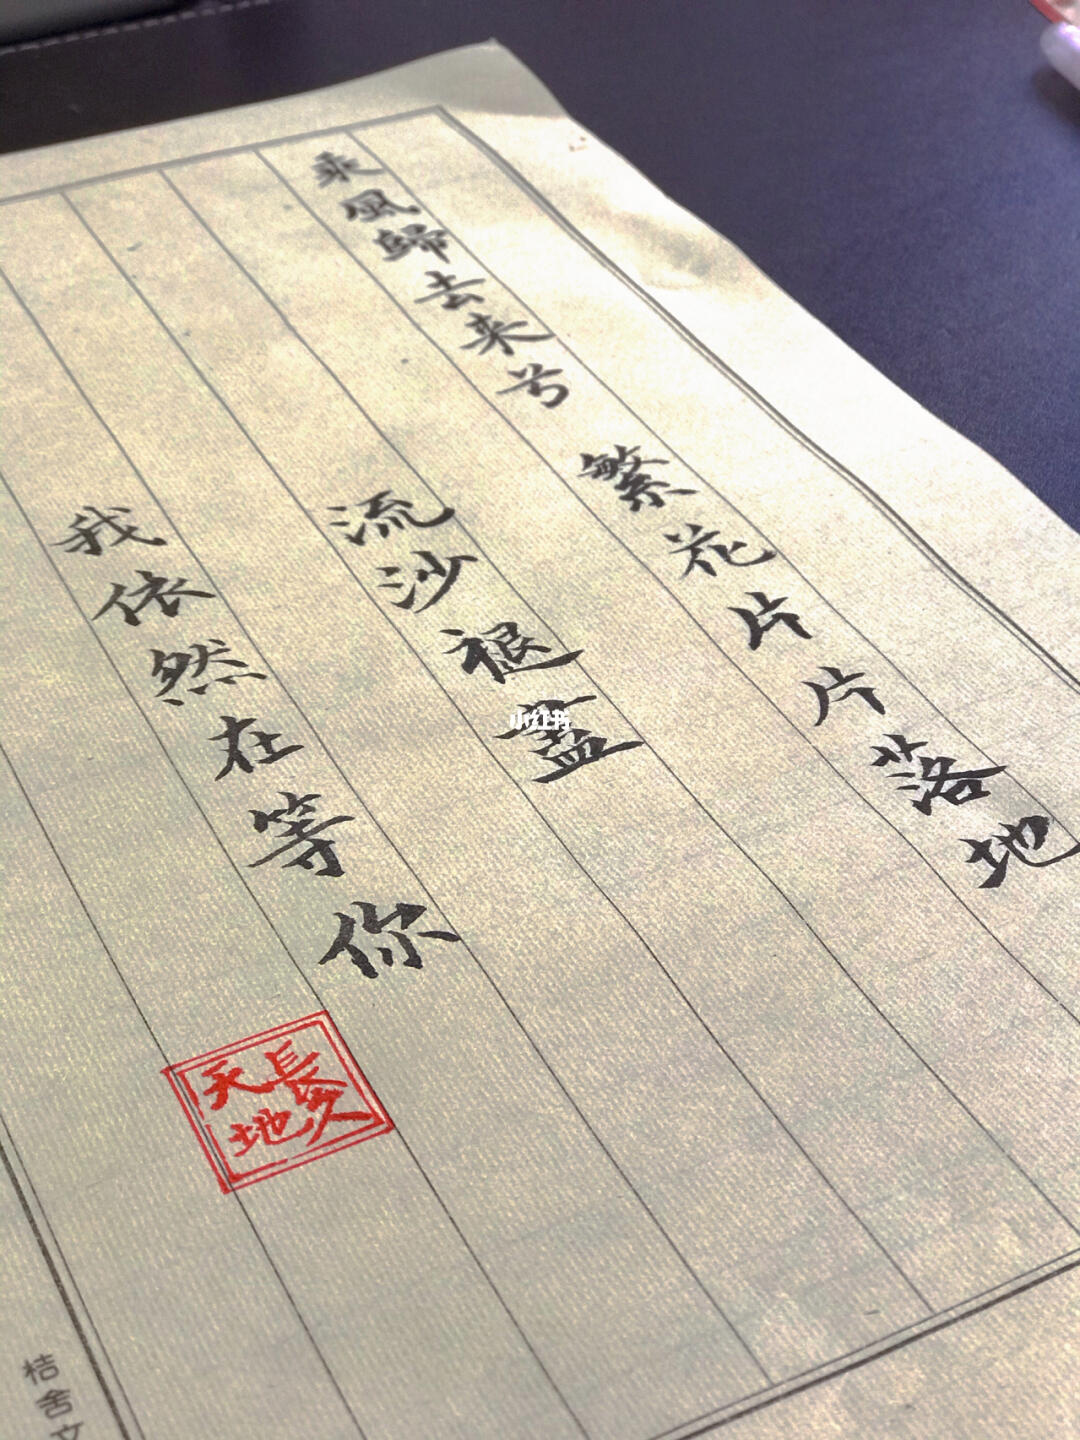 乘風歸去来兮 繁花片片落地
流沙褪盡
我依然在等你
長久
天地
桔舍文
小红书